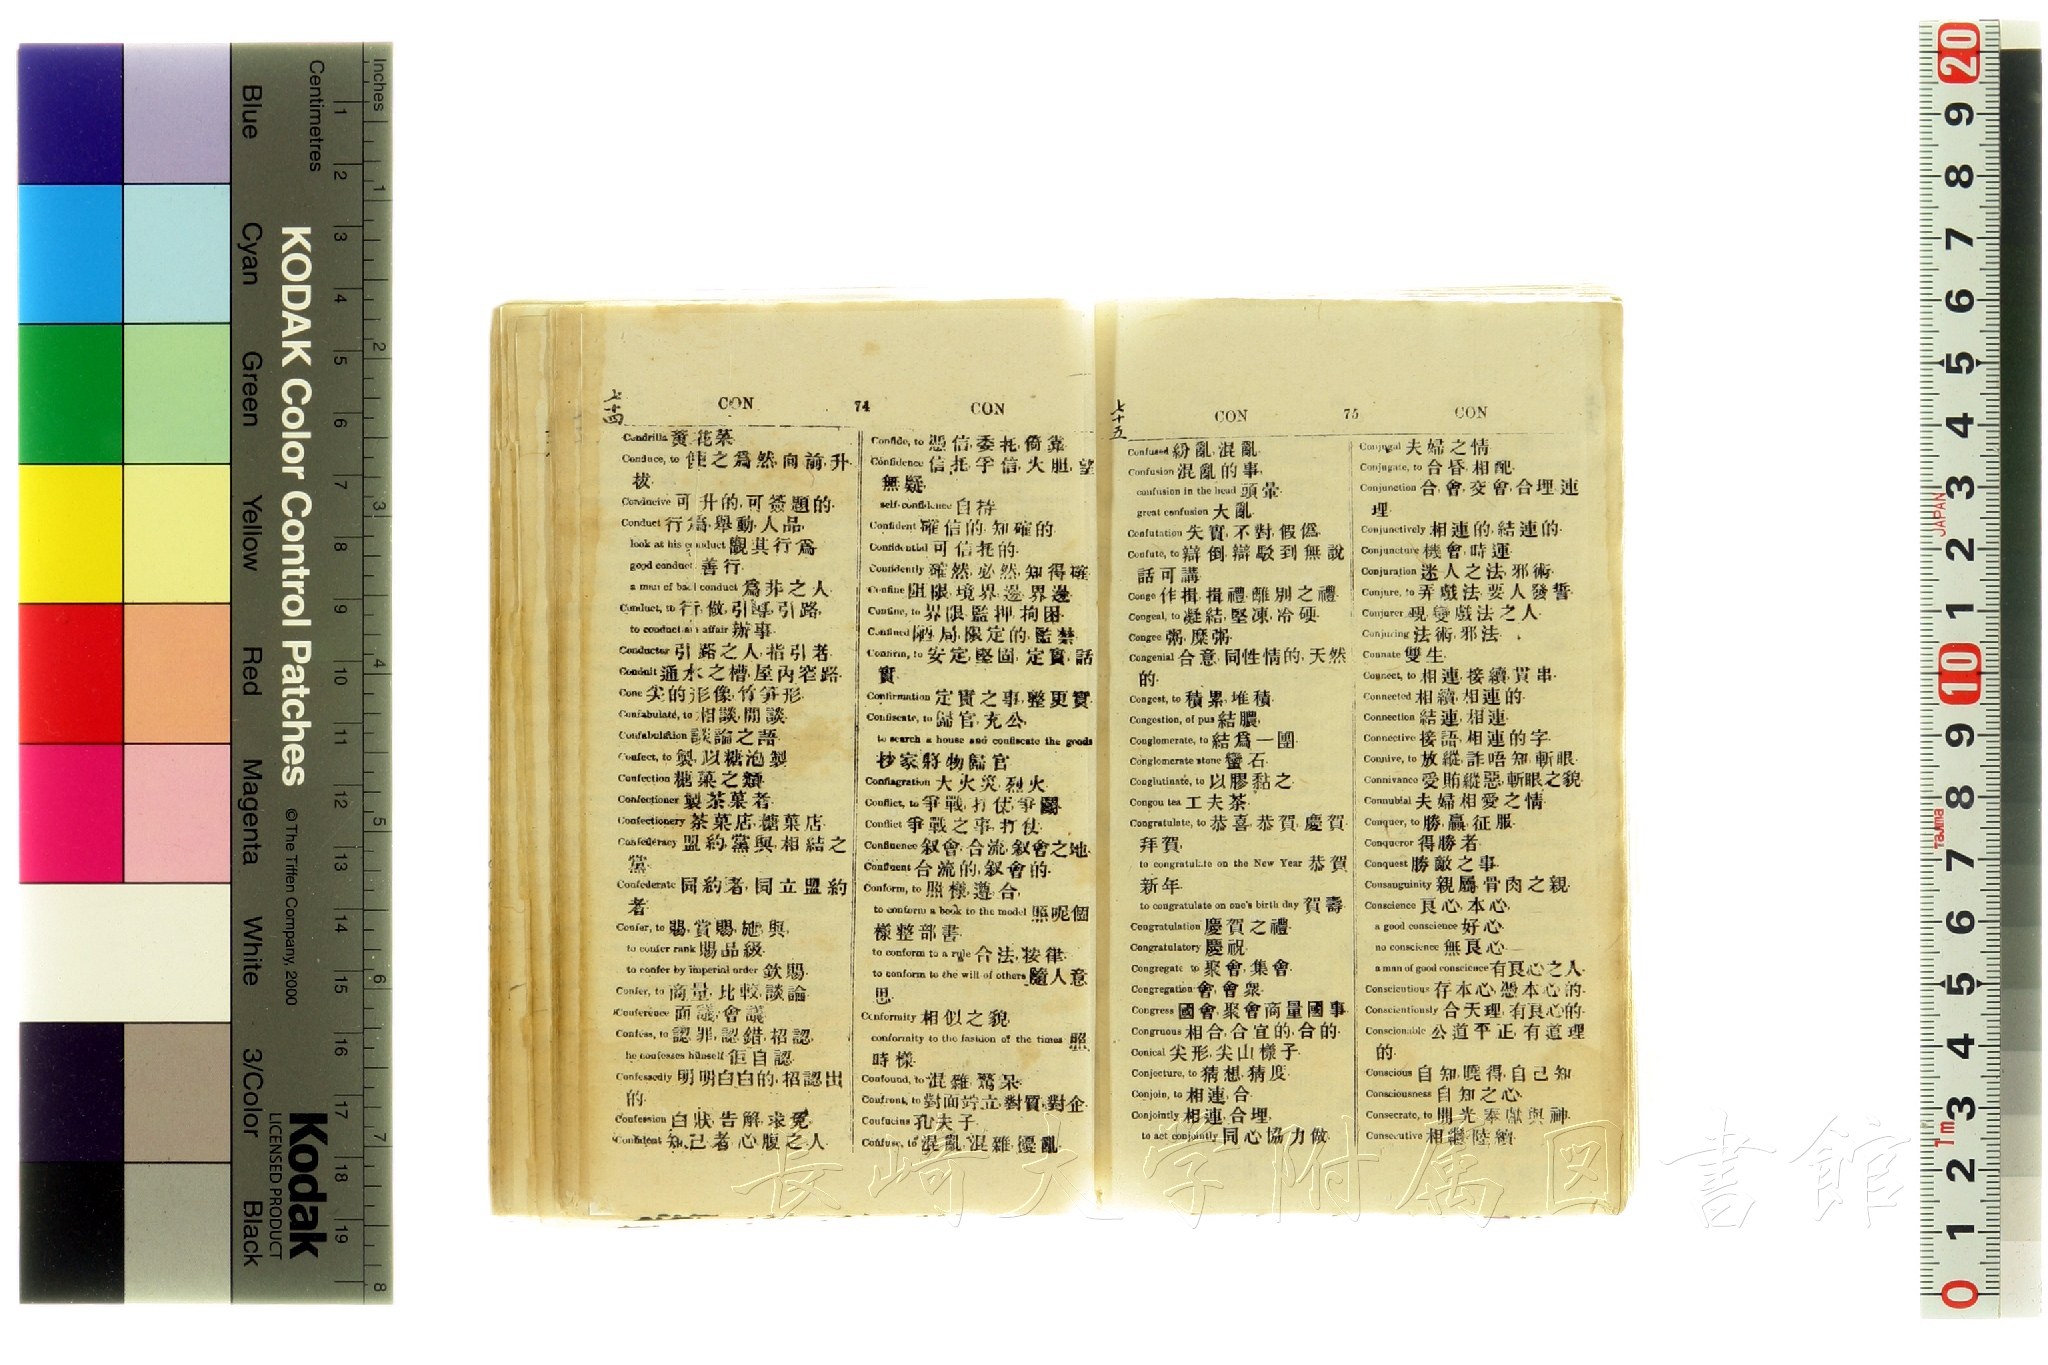 CON 74 CON
七十四
Condrilla 黃花菜
Conduce, to 使之爲然,向前,升
拔
Conducive 可升的,可簽題的
Conduct 行爲,舉動,人品
look at his conduct 觀其行爲
good conduct 善行
a man of bad conduct 爲非之人
Conduct, to 行,做,引導,引路
to conduct an affair 辦事
Conductor 引路之人,指引者
Conduit 通水之槽,屋內窄路
Cone 尖的形像,竹笋形
Confabulate, to 相談,閒談
Confabulation 談論之語
Confect, to 製,以糖泡製
Confection 糖菓之類
Confectioner 製茶菓者
Confectionery 茶菓店,糖菓店
Confederacy 盟約,黨與,相結之
黨
Confederate 同約者,同立盟約
者
Confer, to 賜,賞賜,施與
to confer rank 賜品級
to confer by imperial order 欽賜
Confer, to 商量,比較,談論
Conference 面議,會議
Confess, to 認罪,認錯,招認
he confesses himself 佢自認
Confessedly 明明白白的,招認出
的
Confession 白狀,告解,求寃
Confidant 知己者,心腹之人
Confide, to 憑信,委托,倚靠
Confidence 信托,孚信,大胆,望
無疑
self-confidence 自恃
Confident 確信的,知確的
Confidential 可信托的
Confidently 確然,必然,知得確
Confine 阻限,境界,邊界,邊
Confine, to 界限,監押,拘困
Confined 陋局,限定的,監禁
Confirm, to 安定,堅固,定實,話
實
Confirmation 定實之事,整更實
Confiscate, to 歸官,充公
to search a house and confiscate the goods
抄家將物歸官
Conflagration 大火災,烈火
Conflict, to 爭戰,打仗,爭鬬
Conflict 爭戰之事,打仗
Confluence 叙會,合流,叙會之地
Confluent 合流的,叙會的
Conform, to 照樣,遵合
to conform a book to the model 照呢個
樣整部書
to conform to a rule 合法,按律
to conform to the will of others 隨人意
思
Conformity 相似之貌
conformity to the fashion of the times 照
時樣
Confound, to 混雜,驚呆
Confront, to 對面竚立,對質,對企
Confucius 孔夫子
Confuse, to 混亂,混雜,擾亂
CON 75 CON
七十五
Confused 紛亂,混亂
Confusion 混亂的事
confusion in the head 頭暈
great confusion 大亂
Confutation 失實,不對,假僞
Confute, to 辯倒,辯駁到無說
話可講
Conge 作揖,揖禮,離別之禮
Congeal, to 凝結,堅凍,冷硬
Congee 粥,糜粥
Congenial 合意,同性情的,天然
的
Congest, to 積累,堆積
Congestion, of pus 結膿
Conglomerate, to 結爲一團
Conglomerate stone 蠻石
Conglutinate, to 以膠黏之
Congou tea 工夫茶
Congratulate, to 恭喜,恭賀,慶賀
拜賀
to congratulate on the New Year 恭賀
新年
to congratulate on one's birth day 賀壽
Congratulation 慶賀之禮
Congratulatory 慶祝
Congregate to 聚會,集會
Congregation 會,會衆
Congress 國會,聚會商量國事
Congruous 相合,合宜的,合的
Conical 尖形,尖山樣子
Conjecture, to 猜想,猜度
Conjoin, to 相連,合
Conjointly 相連,合埋
to act conjointly 同心協力做
Conjugal 夫婦之情
Conjugate, to 合昏,相配
Conjunction 合,會,交會,合埋,連
埋
Conjunctively 相連的,結連的
Conjuncture 機會,時運
Conjuration 迷人之法,邪術
Conjure, to 弄戲法,要人發誓
Conjurer 覡,變戲法之人
Conjuring 法術,邪法
Connate 雙生
Connect, to 相連,接續,貫串
Connected 相續,相連的
Connection 結連,相連
Connective 接語,相連的字
Connive, to 放縱,詐唔知,斬眼
Connivance 受賄縱惡,斬眼之貌
Connubial 夫婦相愛之情
Conquer, to 勝,贏,征服
Conqueror 得勝者
Conquest 勝敵之事
Consanguinity 親屬,骨肉之親
Conscience 良心,本心
a good conscience 好心
no conscience 無良心
a man of good conscience 有良心之人
Conscientious 存本心,憑本心的
Conscientiously 合天理,有良心的
Conscionable 公道平正,有道理
的
Conscious 自知,曉得,自己知
Consciousness 自知之心
Consecrate, to 開光,奉獻與神
Consecutive 相繼,陸續
長崎大学附属図書館
KODAK Color Control Patches
© The Tiffen Company, 2000
Kodak
LICENSED PRODUCT
Inches 1 2 3 4 5 6 7 8
Centimetres 1 2 3 4 5 6 7 8 9 10 11 12 13 14 15 16 17 18 19
Blue Cyan Green Yellow Red Magenta White 3/Color Black
20 9 8 7 6 5 4 3 2 1 10 9 8 7 6 5 4 3 2 1 0
JAPAN
Tajima
1m